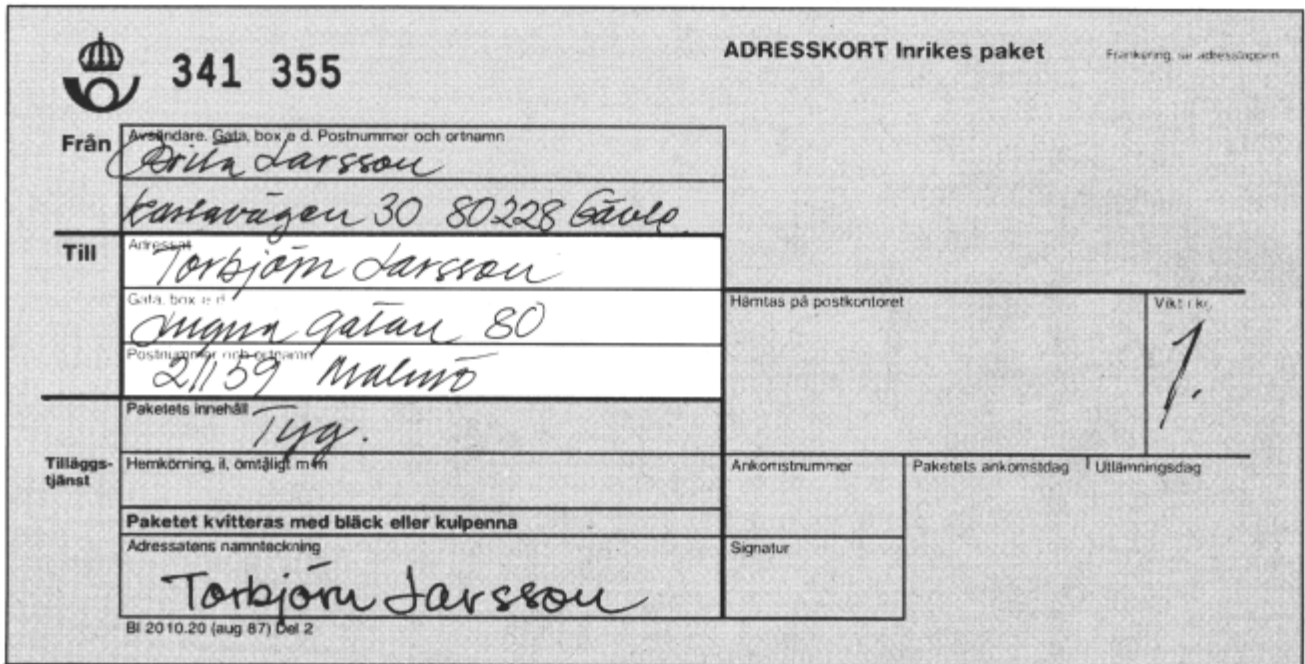 341 355
ADRESSKORT Inrikes paket
Frankering, se adresslappen
Från
Avsändare. Gata, box e d. Postnummer och ortnamn
Brita Larsson
Karlavägen 30 80228 Gävle.
Till
Adressat
Torbjörn Larsson
Gata, box e d
Lugna gatan 80
Postnummer och ortnamn
21159 Malmö
Hämtas på postkontoret
Vikt i kg
1.
Paketets innehåll
Tyg.
Tilläggs-
tjänst
Hemkörning, il, ömtåligt m m
Ankomstnummer
Paketets ankomstdag
Utlämningsdag
Paketet kvitteras med bläck eller kulpenna
Adressatens namnteckning
Torbjörn Larsson
Signatur
Bl 2010.20 (aug 87) Del 2